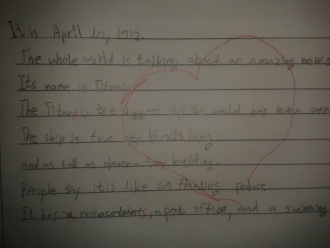 It is April 10, 1912.
The whole world is talking about an amazing new s
Its name is Titanic.
The Titanic is the biggest ship the world has ever seen
The ship is four city blocks long
and as tall as eleven-story building.
People say it is like a floating palace.
It has restaurants, a post office, and a swimming